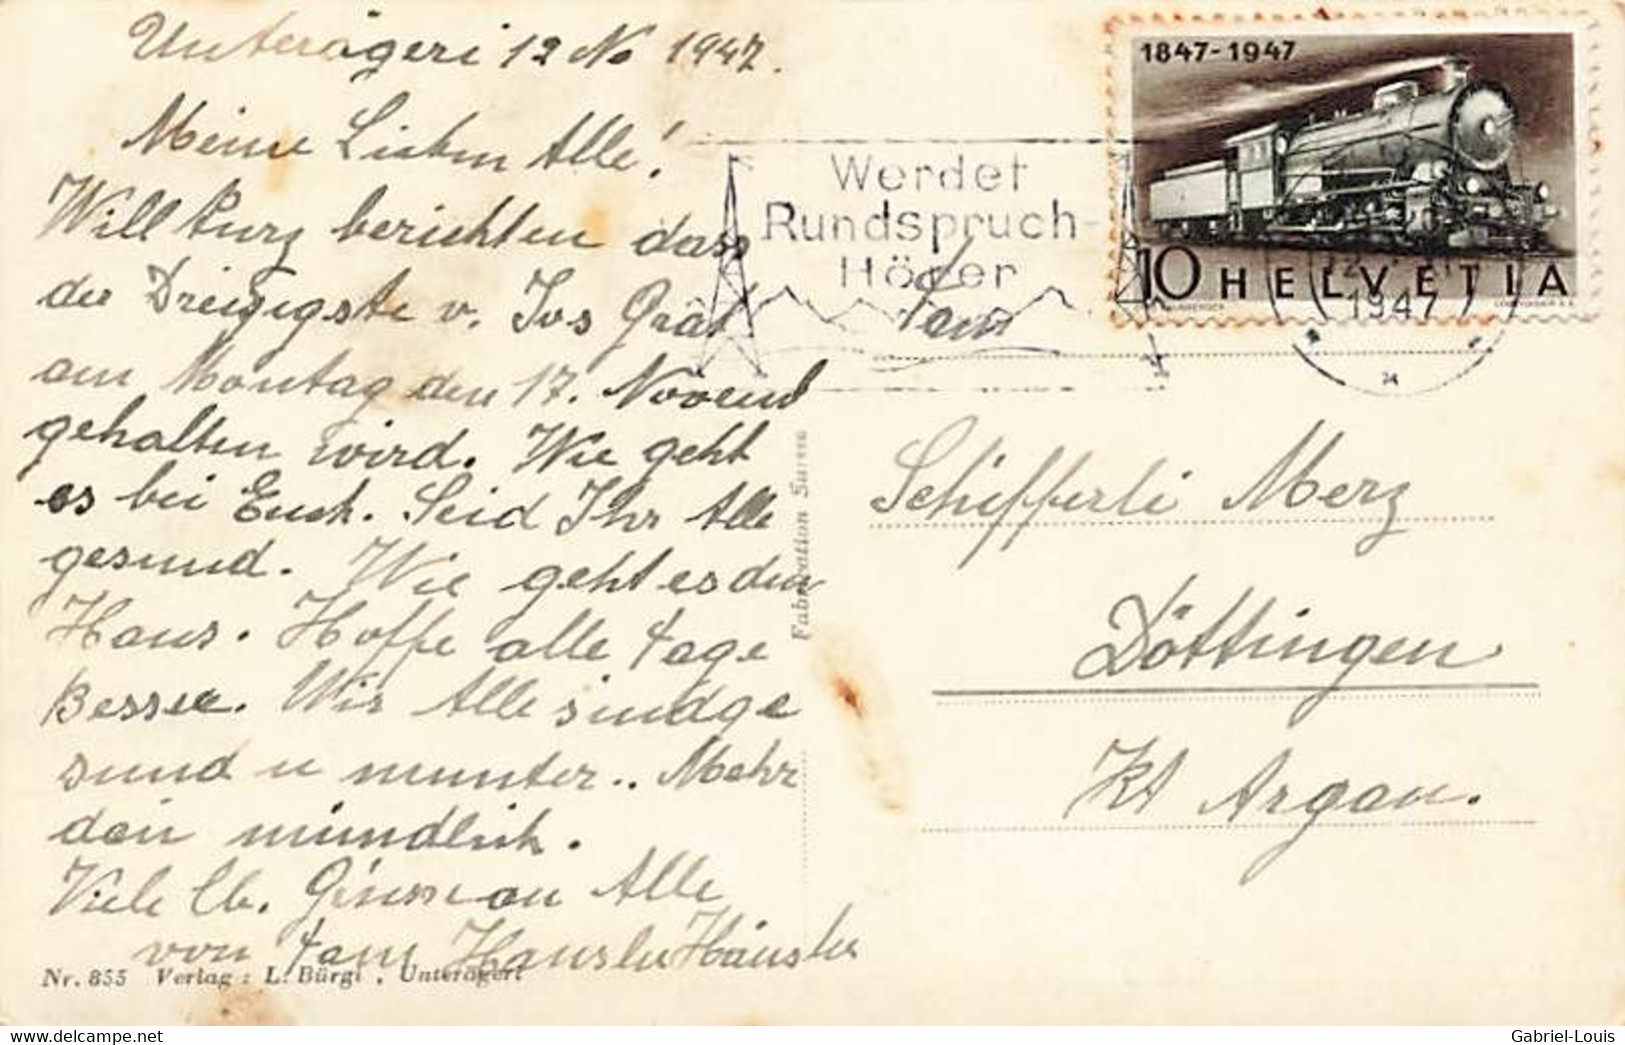 Unterägeri 12 No 1947.
Meine Lieben Alle!
Will kurz berichten dass
der Dreizigste v. Jos Grät
am Montag den 17. Novemb
gehalten wird. Wie geht
es bei Euch. Seid Ihr Alle
gesund. Wie geht es dem
Haus. Hoffe alle tage
Besser. Wir Alle sind ge
sund u munter.. Mehr
dan mündlich.
Viele lb. Grüsse an Alle
von Fam Hausler Häusler
Nr. 855 Verlag : L. Bürgi , Unterägeri
Fabrication Suisse
Werdet
Rundspruch-
Hörer
1847-1947
10 HELVETIA
12.
1947
Fam
Schifferli Merz
Döttingen
Kt Argau.
www.delcampe.net
Gabriel-Louis